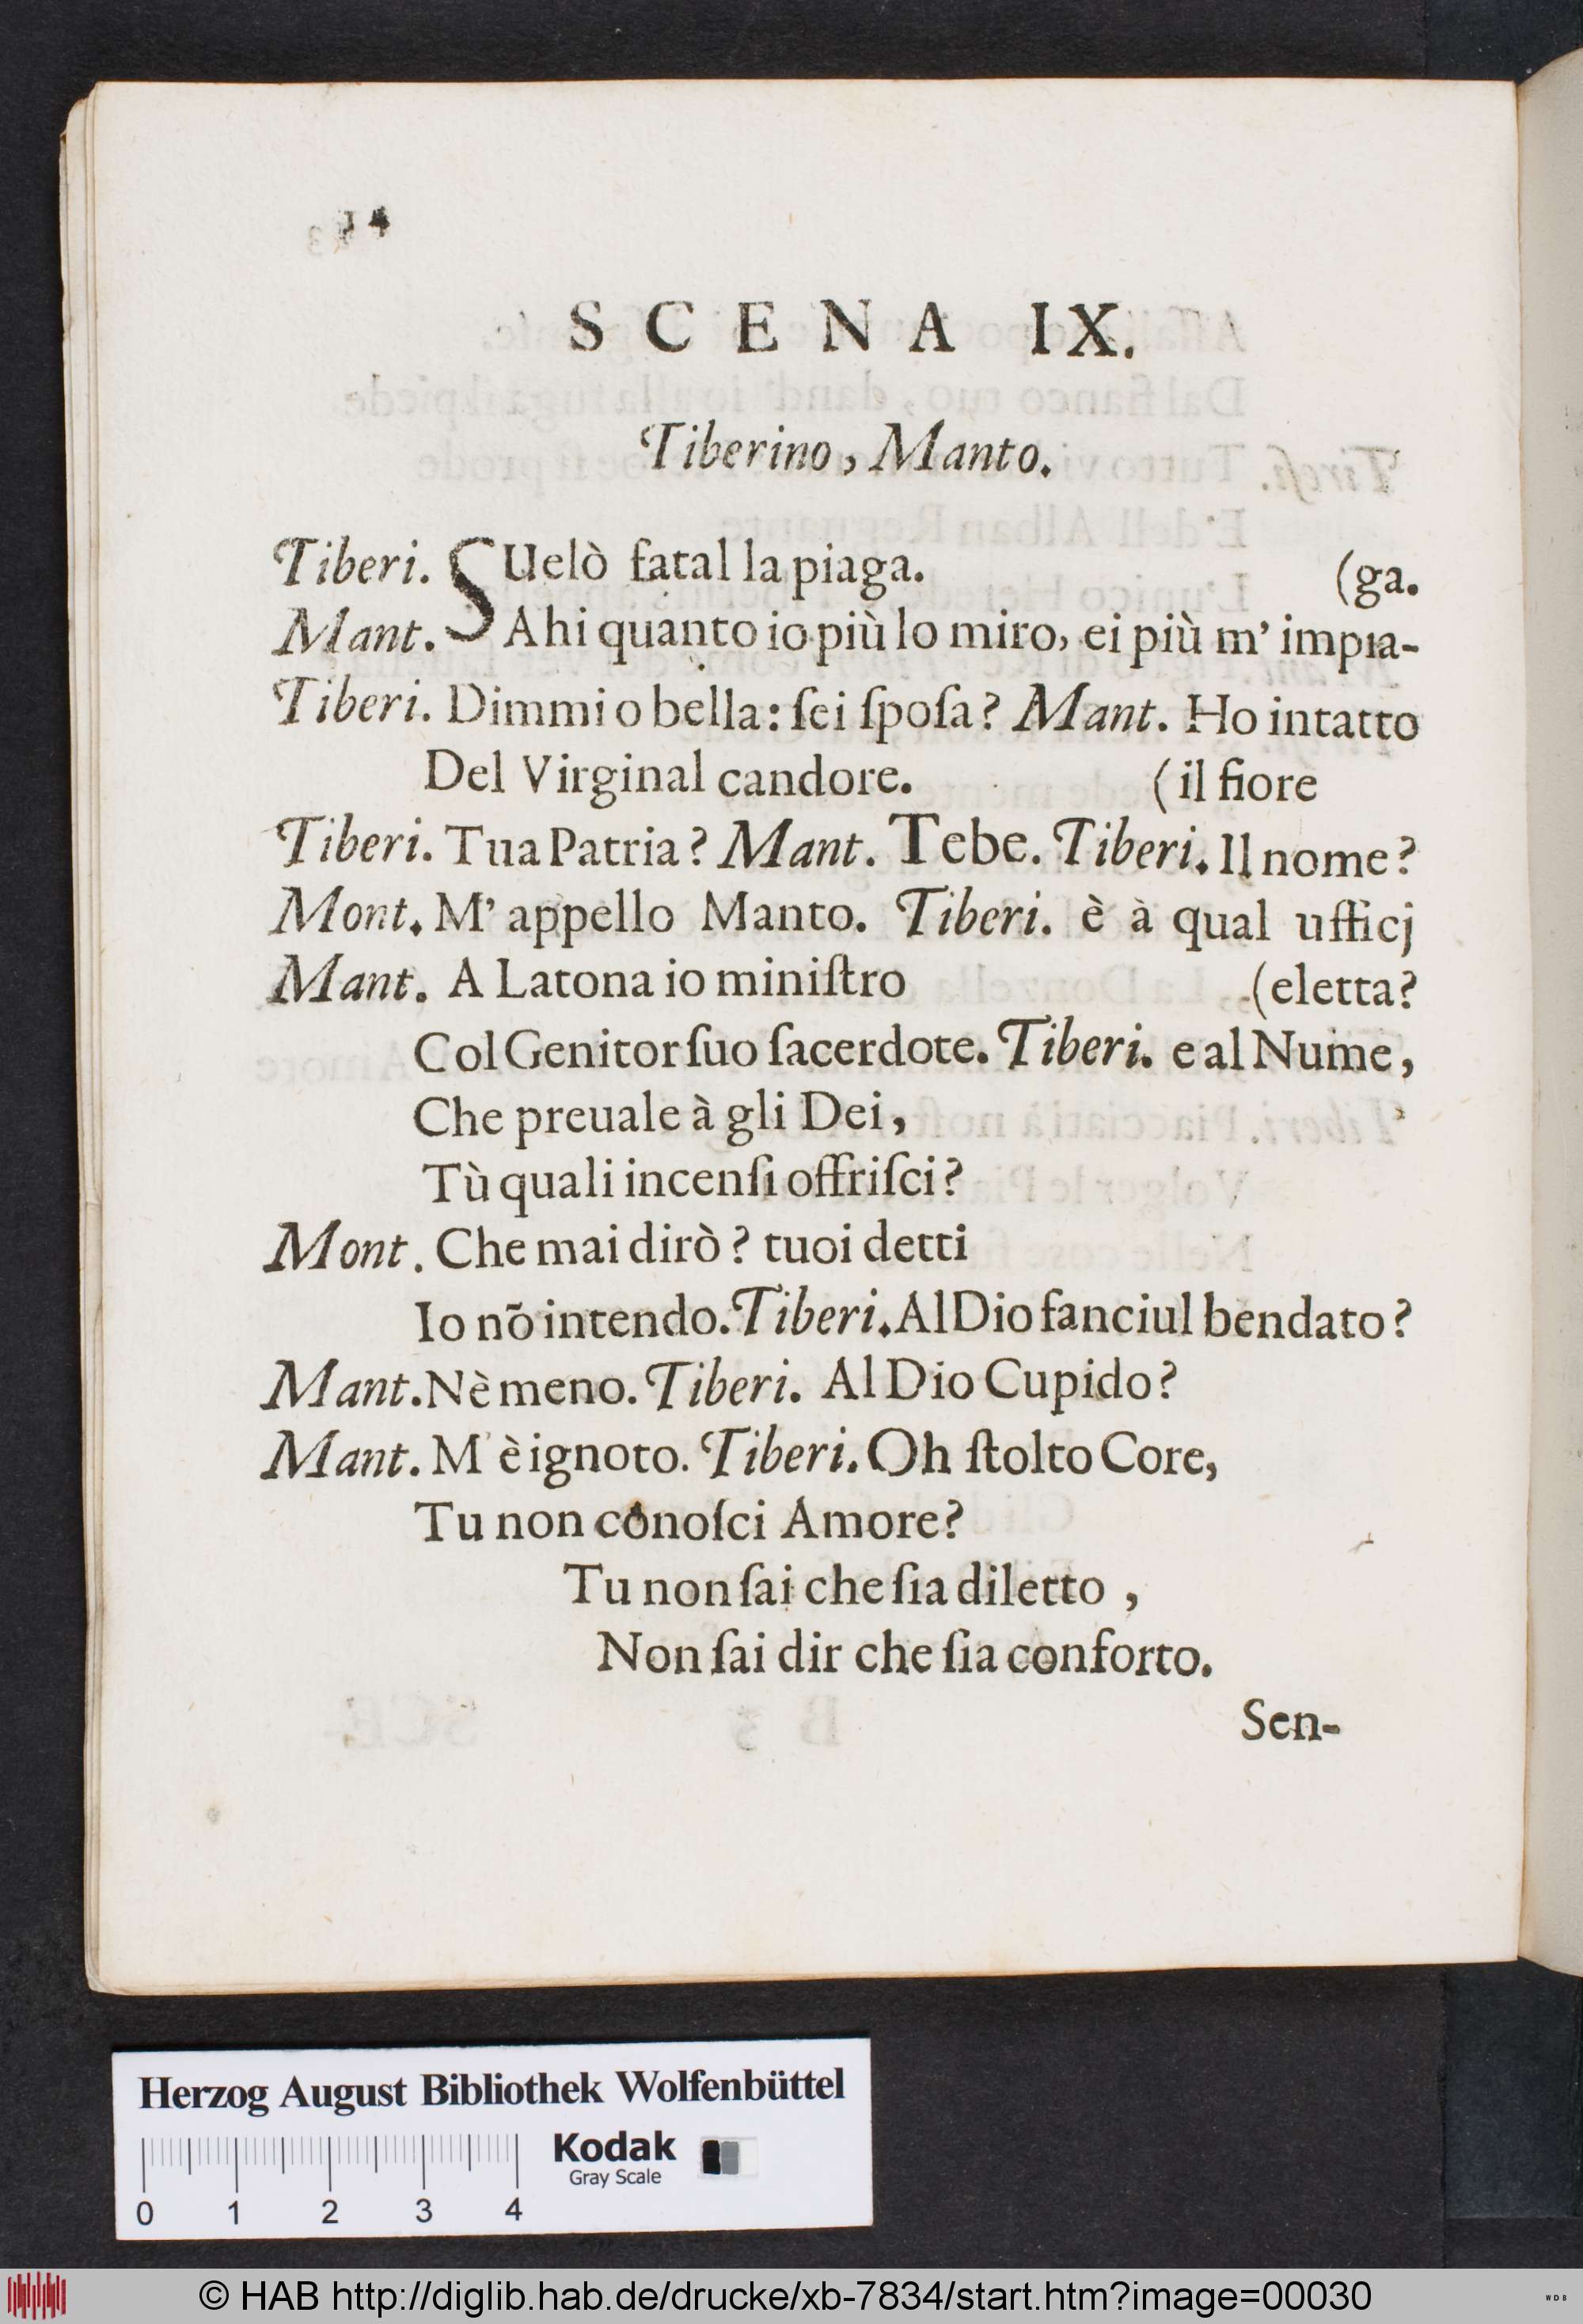 SCENA IX.
Tiberino, Manto.
Tiberi. SUelò fatal la piaga. (ga.
Mant. Ahi quanto io più lo miro, ei più m' impia-
Tiberi. Dimmi o bella: ſei ſpoſa? Mant. Ho intatto
Del Virginal candore. (il fiore
Tiberi. Tua Patria? Mant. Tebe. Tiberi. Il nome?
Mont. M' appello Manto. Tiberi. è à qual ufficj
Mant. A Latona io miniſtro (eletta?
Col Genitor ſuo ſacerdote. Tiberi. e al Nume,
Che preuale à gli Dei,
Tù quali incenſi offriſci?
Mont. Che mai dirò? tuoi detti
Io nō intendo. Tiberi. Al Dio fanciul bendato?
Mant. Nè meno. Tiberi. Al Dio Cupido?
Mant. M' è ignoto. Tiberi. Oh ſtolto Core,
Tu non conoſci Amore?
Tu non ſai che ſia diletto,
Non ſai dir che ſia conforto.
Sen-
Herzog August Bibliothek Wolfenbüttel
Kodak
Gray Scale
0 1 2 3 4
© HAB http://diglib.hab.de/drucke/xb-7834/start.htm?image=00030
WDB